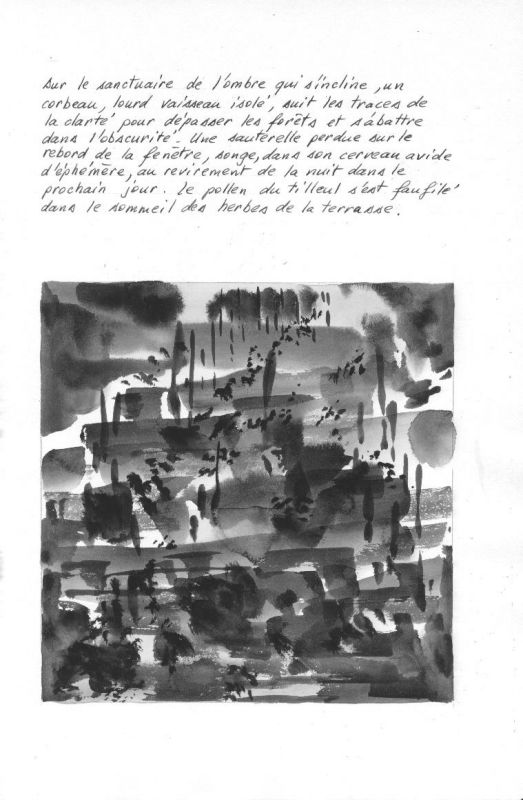 Sur le sanctuaire de l'ombre qui s'incline, un
corbeau, lourd vaisseau isolé, suit les traces de
la clarté pour dépasser les forêts et s'abattre
dans l'obscurité. Une sauterelle perdue sur le
rebord de la fenêtre, songe, dans son cerveau avide
d'éphémère, au revirement de la nuit dans le
prochain jour. Le pollen du tilleul s'est faufilé
dans le sommeil des herbes de la terrasse.